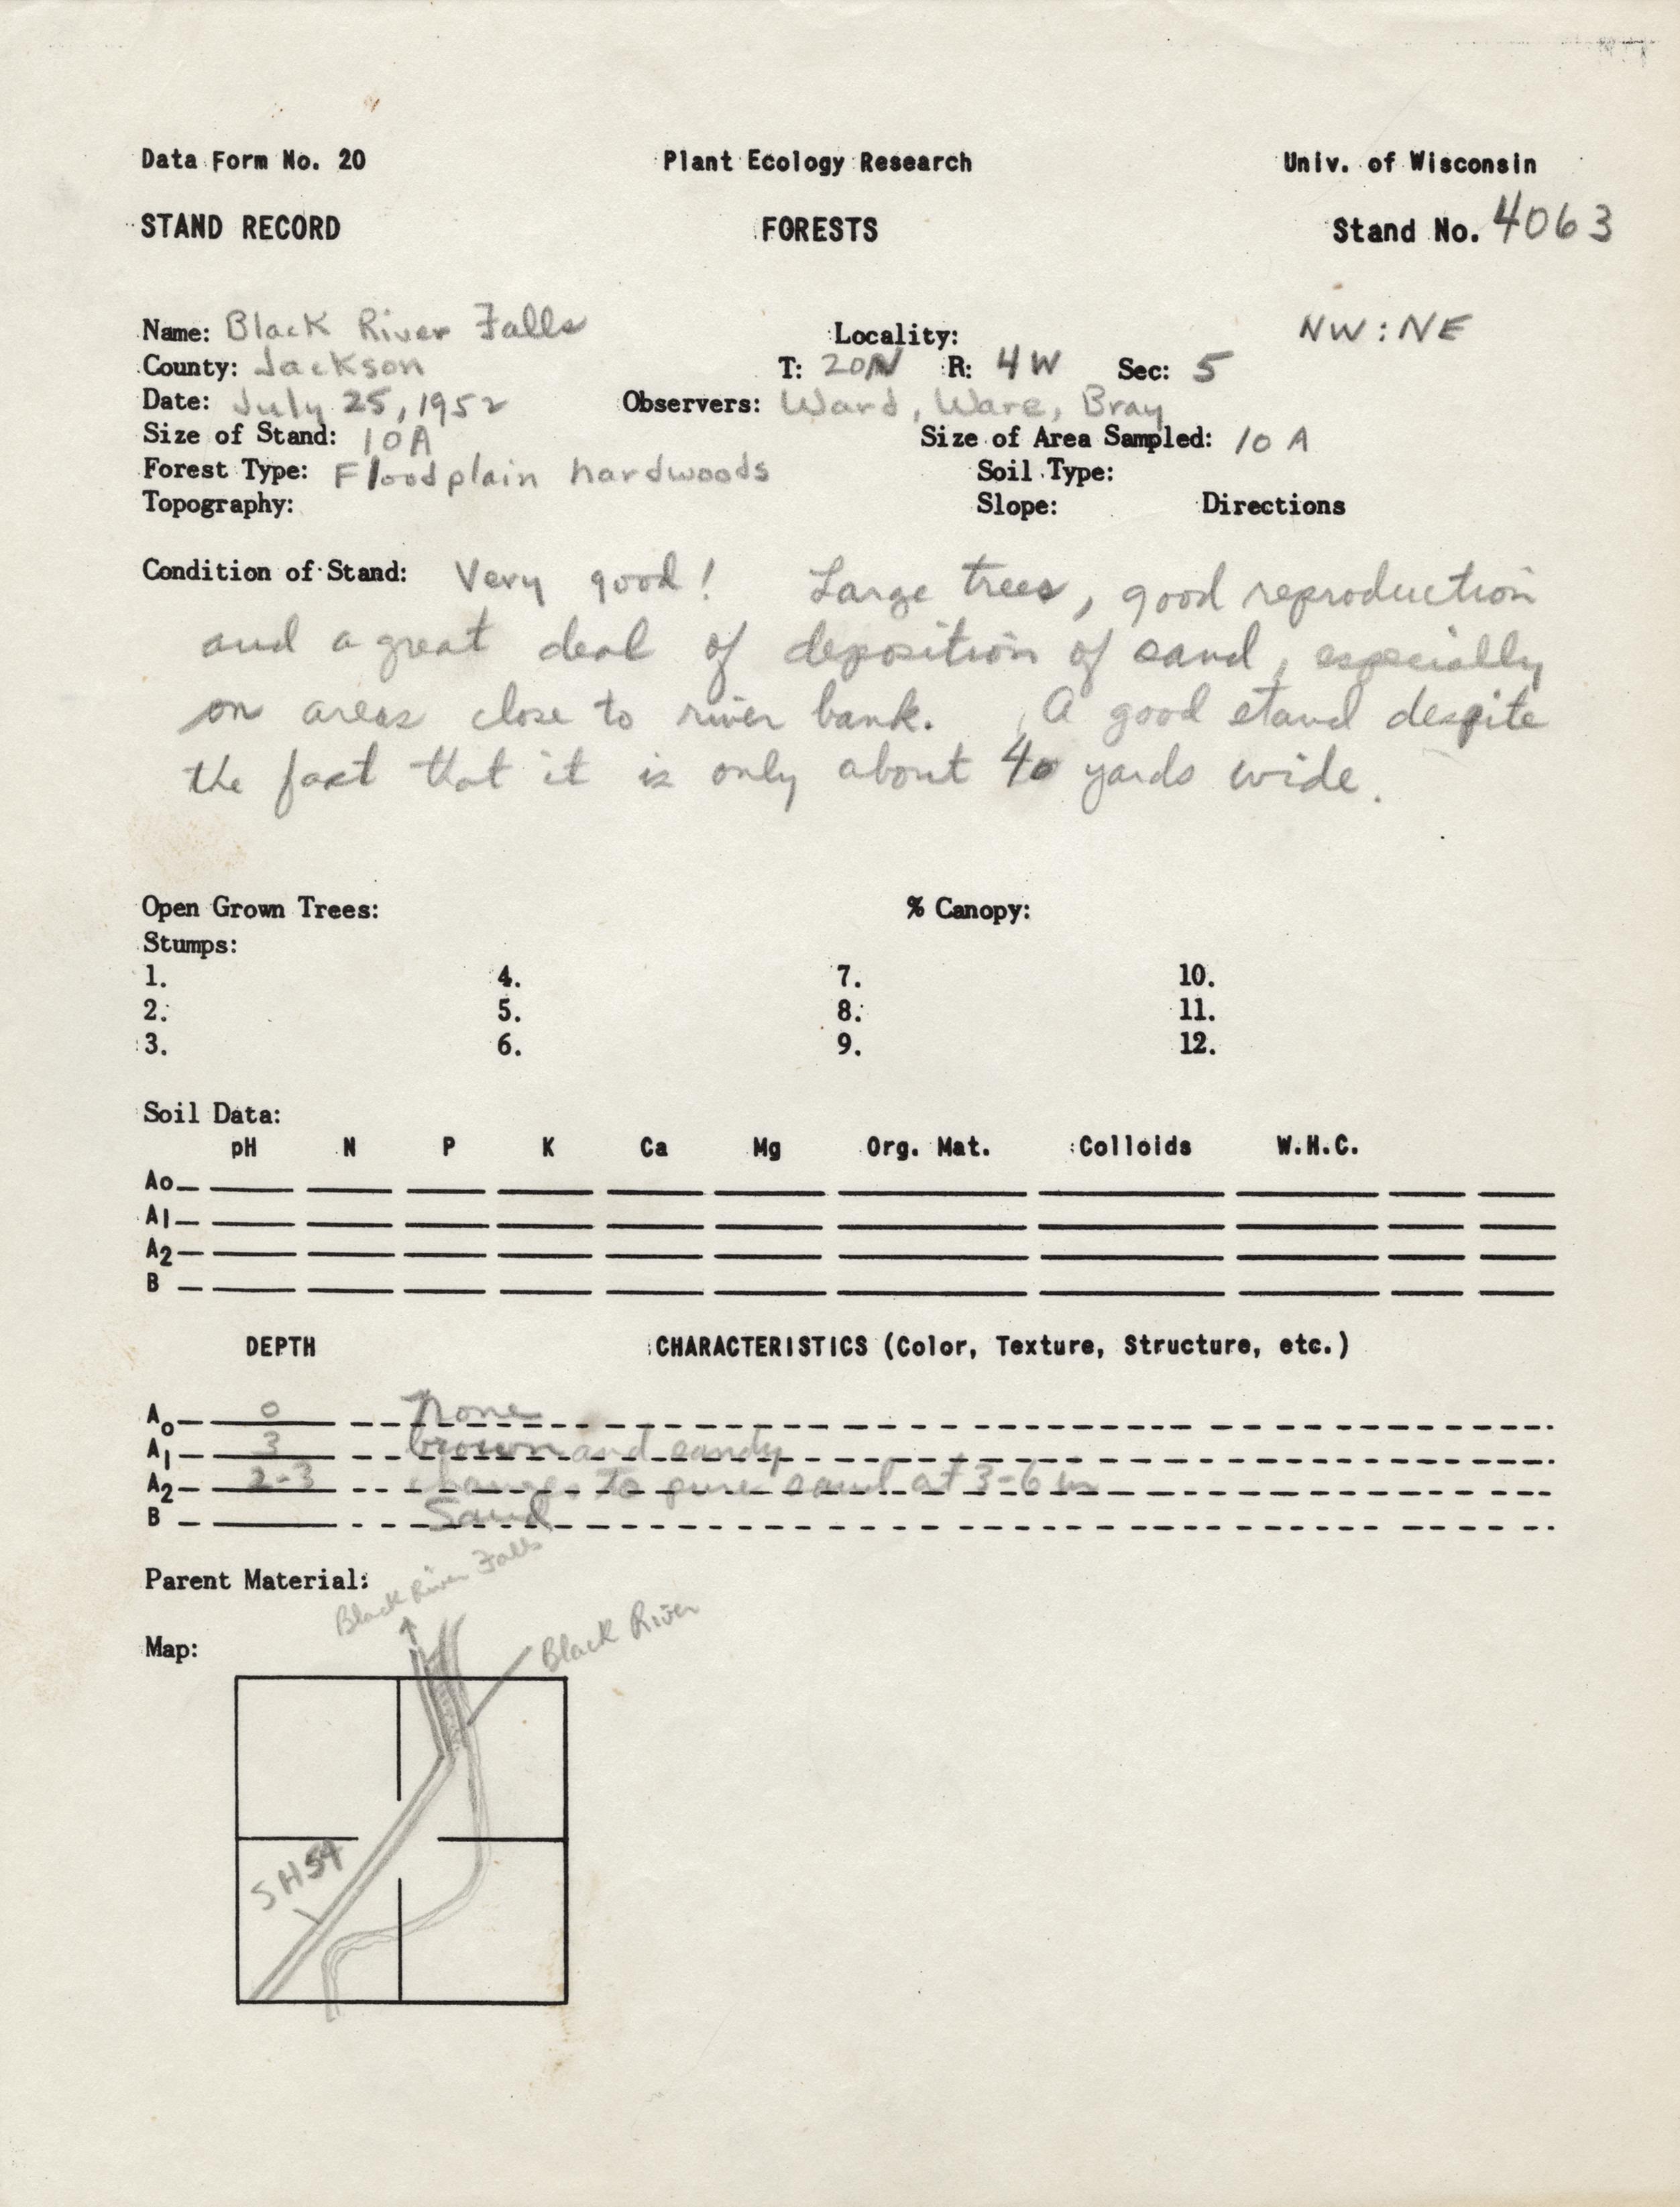 Data Form No. 20 Plant Ecology Research Univ. of Wisconsin
STAND RECORD FORESTS Stand No. 4063
Name: Black River Falls Locality: NW:NE
County: Jackson T: 20N R: 4W Sec: 5
Date: July 25, 1952 Observers: Ward, Ware, Bray
Size of Stand: 10A Size of Area Sampled: 10 A
Forest Type: Floodplain hardwoods Soil Type:
Topography: Slope: Directions
Condition of Stand: Very good! Large trees, good reproduction
and a great deal of deposition of sand, especially
on areas close to river bank. A good stand despite
the fact that it is only about 40 yards wide.
Open Grown Trees: % Canopy:
Stumps:
1. 4. 7. 10.
2. 5. 8. 11.
3. 6. 9. 12.
Soil Data:
pH N P K Ca Mg Org. Mat. Colloids W.H.C.
Ao
A1
A2
B
DEPTH CHARACTERISTICS (Color, Texture, Structure, etc.)
Ao 0 none
A1 3 brown and sandy
A2 2-3 changes to pure sand at 3-6 in
B Sand
Black River Falls
Parent Material:
Black River
Map:
SH54